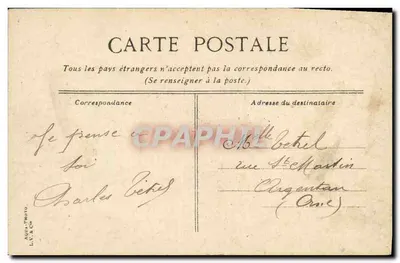 CARTE POSTALE
Tous les pays étrangers n'acceptent pas la correspondance au recto.
(Se renseigner à la poste.)
Correspondance
Adresse du destinataire
Je pense à
toi
Charles Tétrel
Mlle Tétrel
rue St Martin
Argentan
(Orne)
CPAPHIL
AQUA-PHOTO
L.V. & Cie